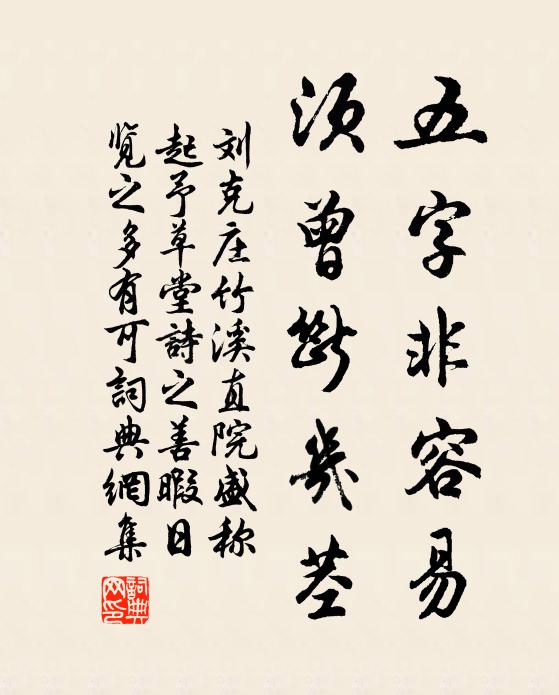 五字非容易
须曾断几茎
刘克庄竹溪直院盛称
起予草堂詩之善暇日
覽之多有可詞典網集
詞典网印